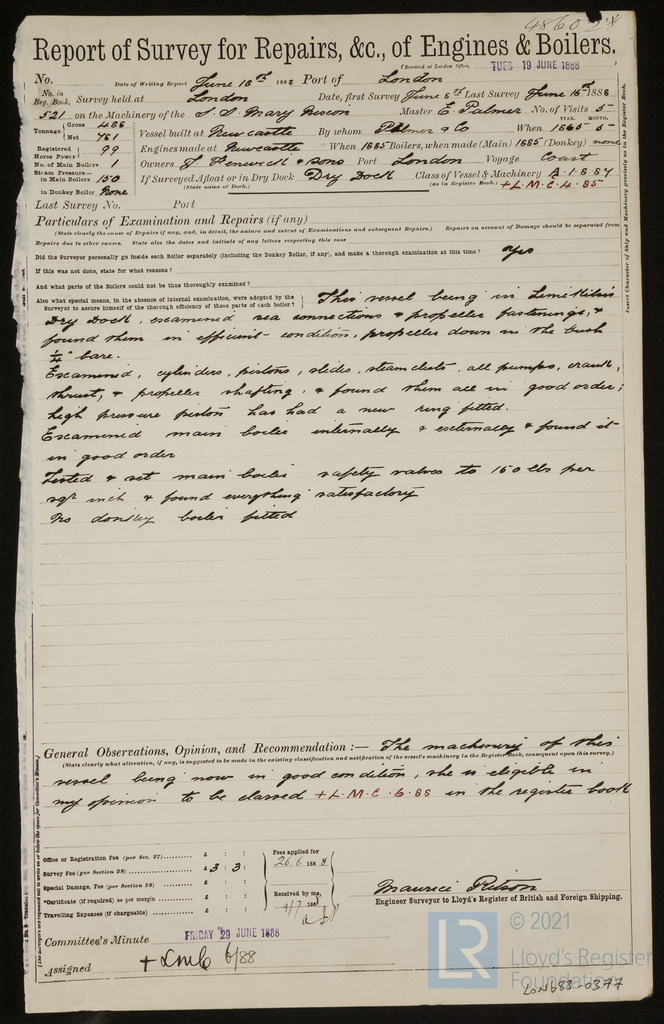 48602
Report of Survey for Repairs, &c., of Engines & Boilers.
(Received at London Office, TUES 19 JUNE 1888
No. Date of Writing Report June 18th 1888 Port of London
No. in Reg. Book. Survey held at London Date, first Survey June 8th Last Survey June 16th 1888
521 on the Machinery of the S. S. Mary Master E. Palmer No. of Visits 5
YEAR. MONTH.
Tonnage Gross 486 Net 761 Vessel built at Newcastle By whom Palmer & Co When 1865 5
Registered Horse Power 99 Engines made at Newcastle When 1885 Boilers, when made (Main) 1885 (Donkey) none
No. of Main Boilers 1 Owners J. Fenwick & Sons Port London Voyage Coast
Steam Pressure— in Main Boilers 150 If Surveyed Afloat or in Dry Dock Dry Dock Class of Vessel & Machinery A.1.8 87
in Donkey Boiler None (State name of Dock.) (as in Register Book.) +L.M.C. 4.85
Last Survey No. Port
Particulars of Examination and Repairs (if any)
(State clearly the cause of Repairs if any, and, in detail, the nature and extent of Examinations and subsequent Repairs.) Repairs on account of Damage should be separated from
Repairs due to other causes. State also the dates and initials of any letters respecting this case
Did the Surveyor personally go inside each Boiler separately (including the Donkey Boiler, if any), and make a thorough examination at this time? Yes
If this was not done, state for what reasons?
And what parts of the Boilers could not be thus thoroughly examined?
Also what special means, in the absence of internal examination, were adopted by the Surveyor to assure himself of the thorough efficiency of those parts of each boiler? This vessel being in Limekilns
Dry Dock, examined sea connections & propeller fastenings, &
found them in efficient condition, propeller down in the bush
1/4" bare.
Examined, cylinders, pistons, slides, steam chests, all pumps, crank,
thrust, & propeller shafting, & found them all in good order;
high pressure piston has had a new ring fitted.
Examined main boiler internally & externally & found it
in good order
Tested & set main boiler safety valves to 150 lbs per
sqr inch & found everything satisfactory
No donkey boiler fitted
General Observations, Opinion, and Recommendation:— The machinery of this
(State clearly what alteration, if any, is suggested to be made in the existing classification and notification of the vessel's machinery in the Register Book, consequent upon this survey.)
vessel being now in good condition, she is eligible in
my opinion to be classed +L.M.C. 6.88 in the register book
Office or Registration Fee (per Sec. 27) £ : : Fees applied for
Survey Fee (per Section 28) £ 3 : 3 : 26.6 1888
Special Damage, Fee (per Section 28) £ : :
*Certificate (if required) as per margin £ : : Received by me,
Travelling Expenses (if chargeable) £ : : 4/7 188
Maurice Ritson
Engineer Surveyor to Lloyd's Register of British and Foreign Shipping.
Committee's Minute FRIDAY 29 JUNE 1888
Assigned +LMC 6/88
Insert Character of Ship and Machinery precisely as in the Register Book.
LR © 2021
Lloyd's Register
Foundation
LON683-0377